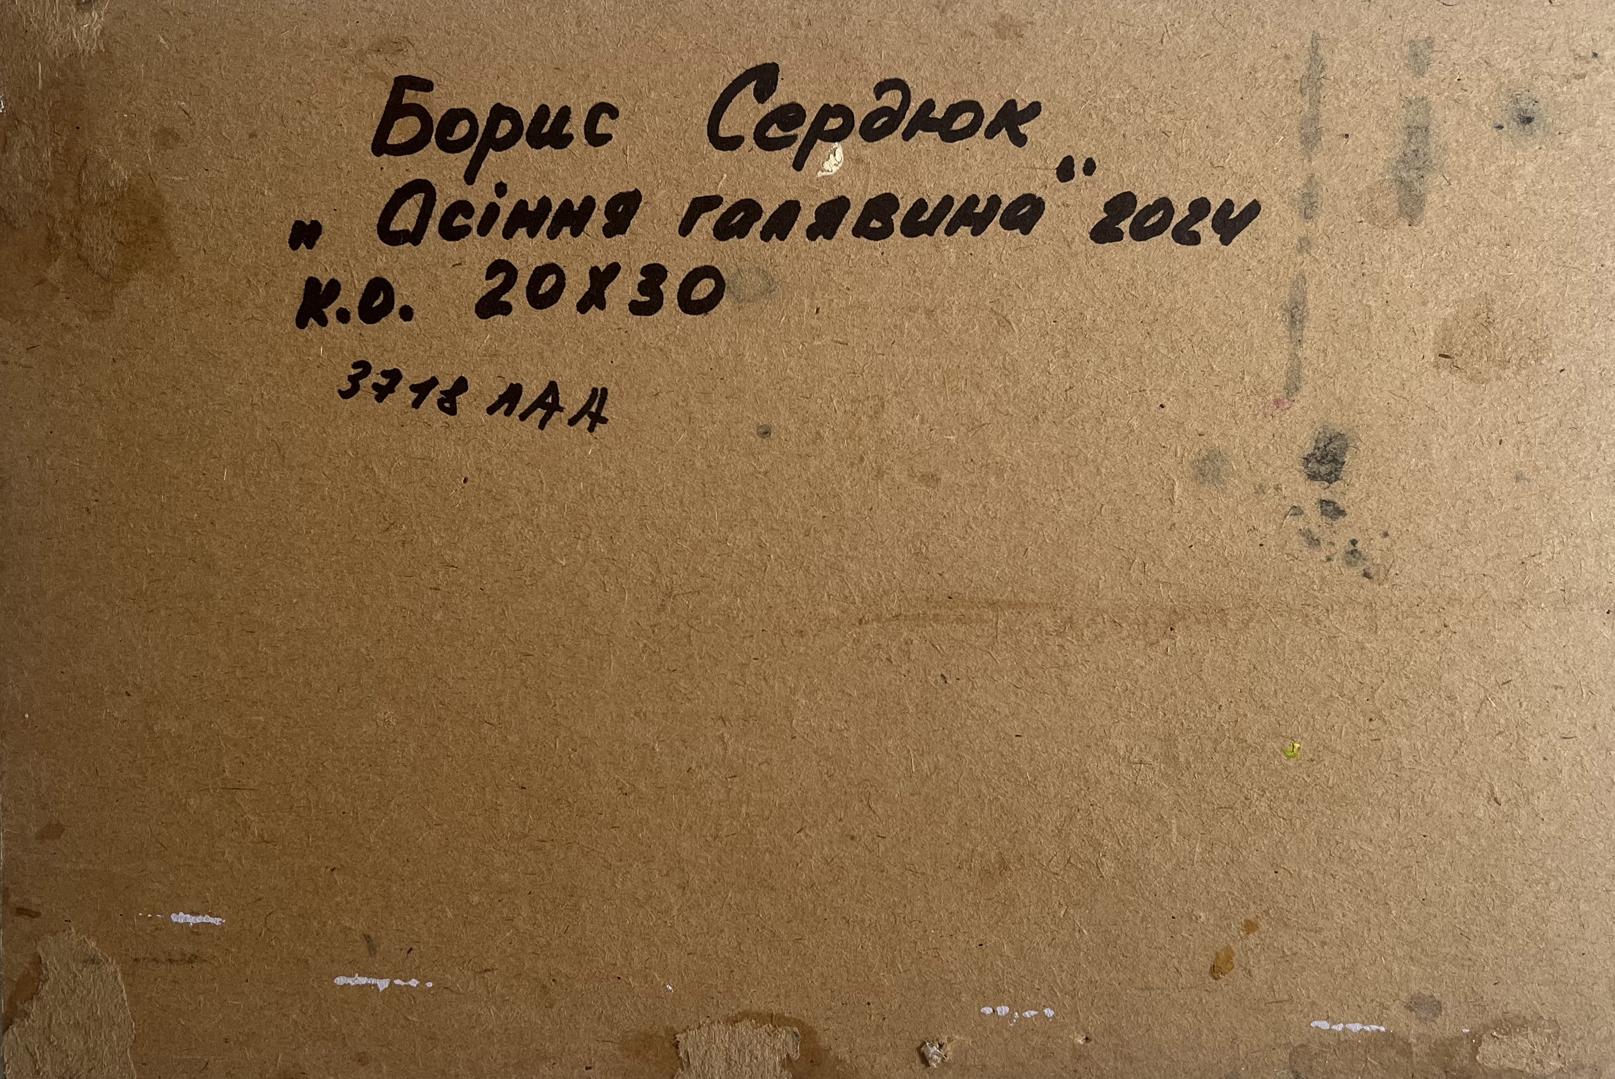 Борис Сердюк
„Осіння галявина" 2024
К.О. 20Х30
3718 ЛАА